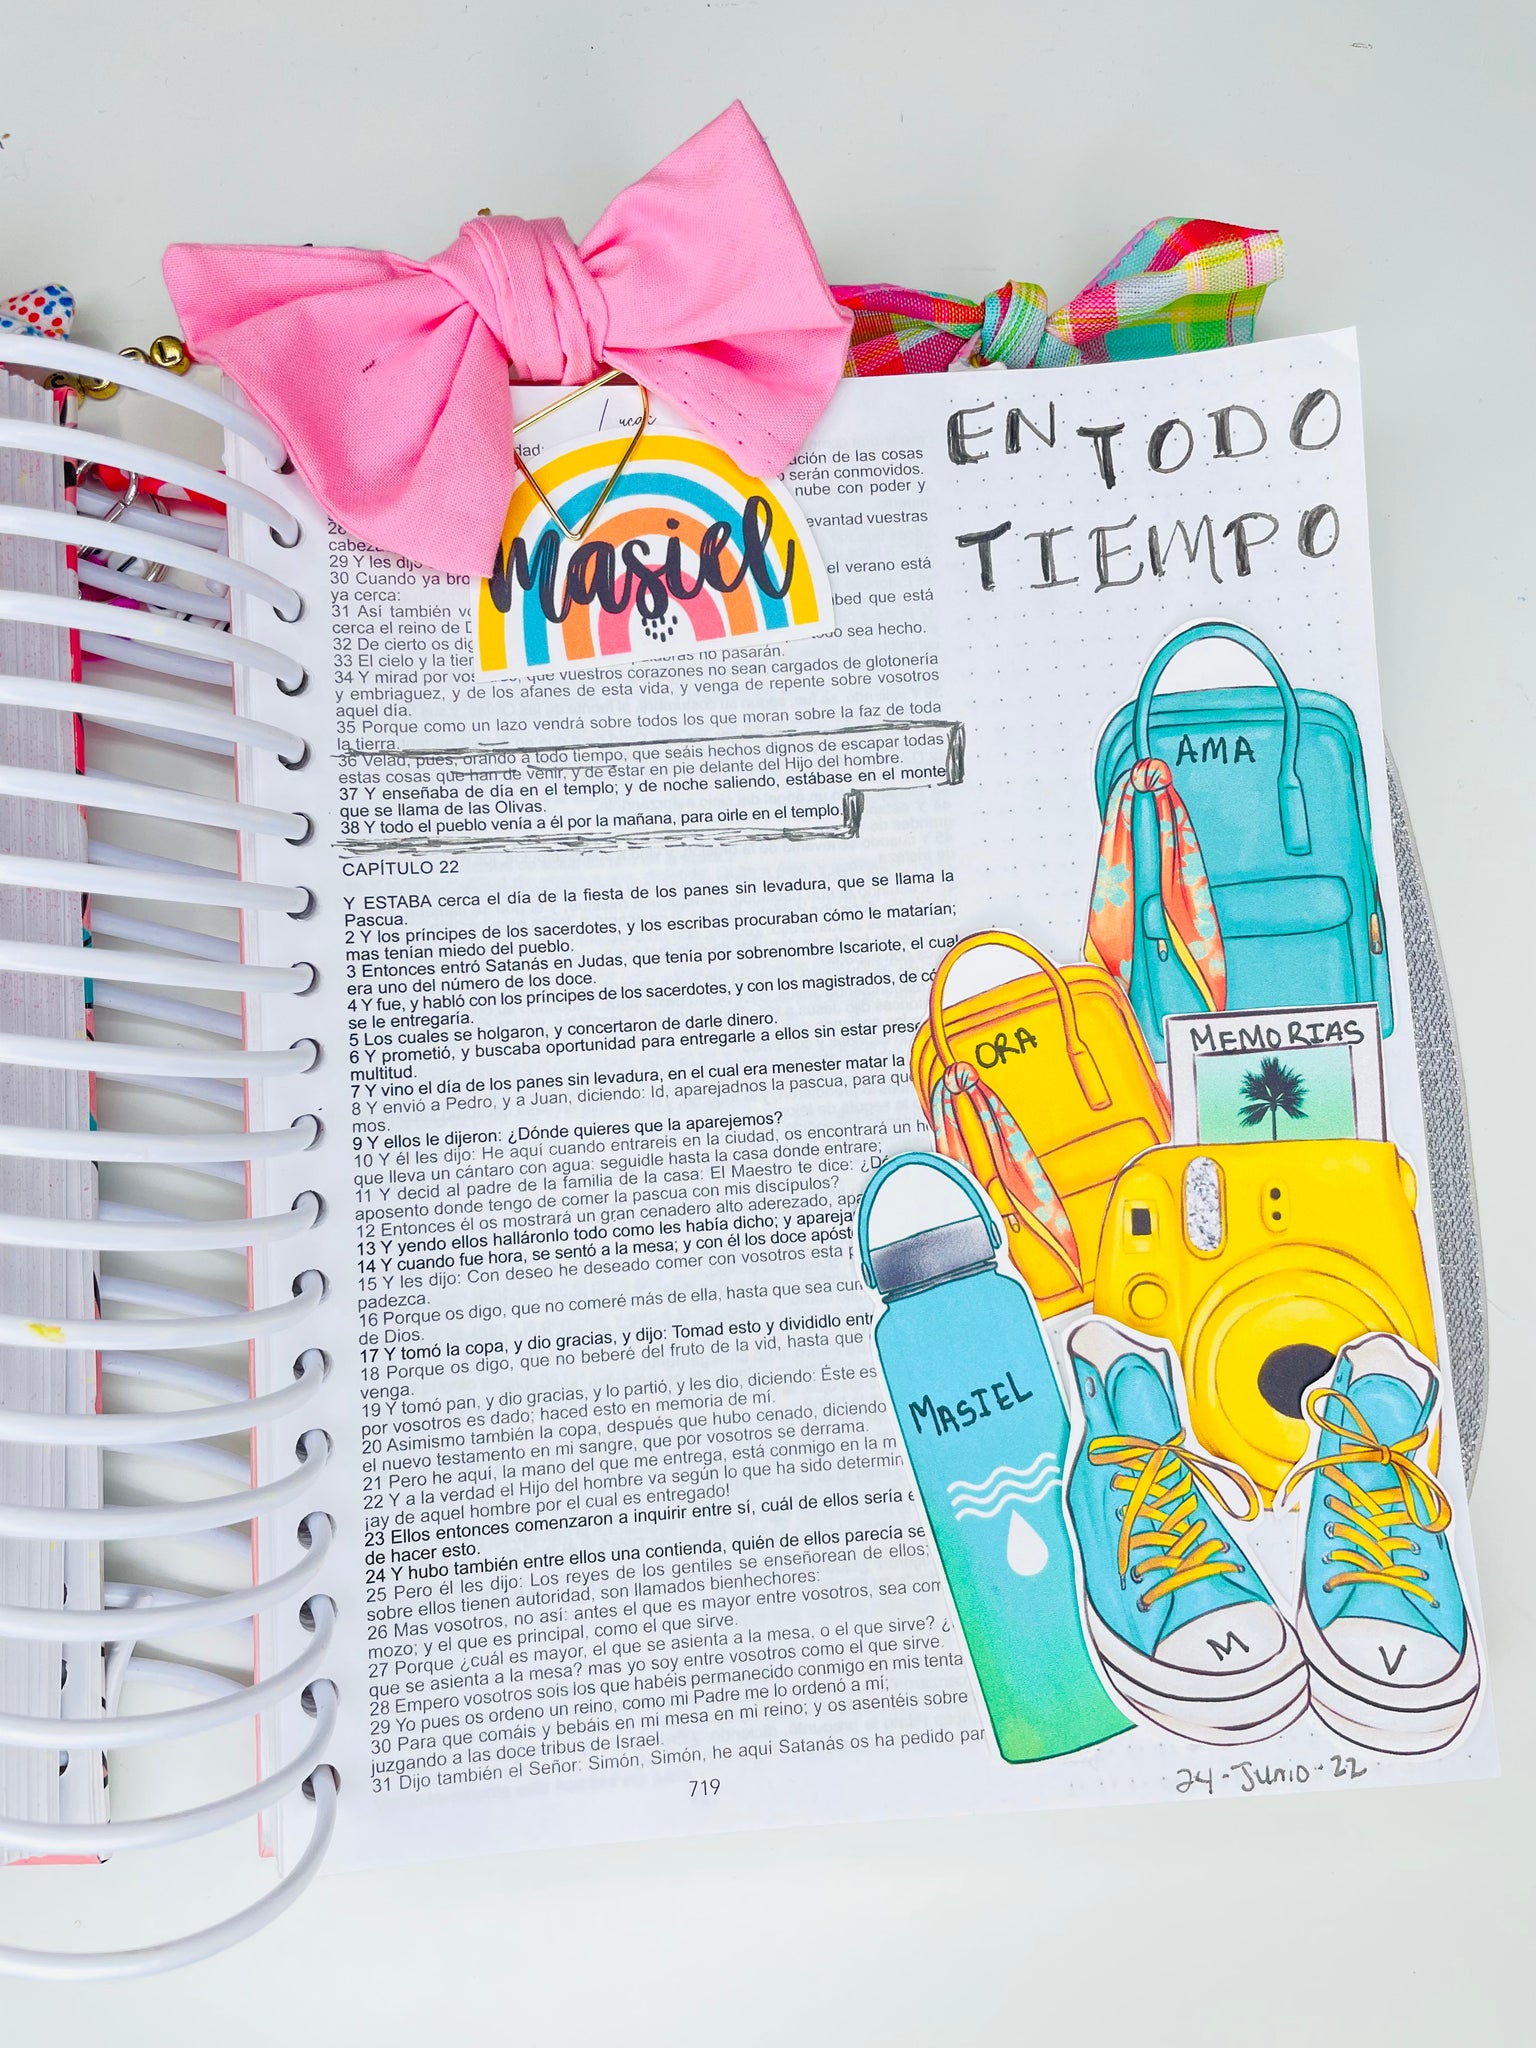 Lucas
dad:
EN TODO
TIEMPO
masiel
ción de las cosas
serán conmovidos.
nube con poder y
28
evantad vuestras
cabeza
29 Y les dijo
30 Cuando ya bro
el verano está
ya cerca:
31 Así también vo
bed que está
cerca el reino de D
32 De cierto os dig
todo sea hecho.
33 El cielo y la tier
palabras no pasarán.
34 Y mirad por vos que vuestros corazones no sean cargados de glotonería
y embriaguez, y de los afanes de esta vida, y venga de repente sobre vosotros
aquel día.
35 Porque como un lazo vendrá sobre todos los que moran sobre la faz de toda
la tierra.
36 Velad, pues, orando a todo tiempo, que seáis hechos dignos de escapar todas
estas cosas que han de venir, y de estar en pie delante del Hijo del hombre.
37 Y enseñaba de día en el templo; y de noche saliendo, estábase en el monte
que se llama de las Olivas.
38 Y todo el pueblo venía a él por la mañana, para oirle en el templo.
CAPÍTULO 22
Y ESTABA cerca el día de la fiesta de los panes sin levadura, que se llama la
Pascua.
2 Y los príncipes de los sacerdotes, y los escribas procuraban cómo le matarían;
mas tenían miedo del pueblo.
3 Entonces entró Satanás en Judas, que tenía por sobrenombre Iscariote, el cual
era uno del número de los doce.
4 Y fue, y habló con los príncipes de los sacerdotes, y con los magistrados, de có
se le entregaría.
5 Los cuales se holgaron, y concertaron de darle dinero.
6 Y prometió, y buscaba oportunidad para entregarle a ellos sin estar prese
multitud.
7 Y vino el día de los panes sin levadura, en el cual era menester matar la
8 Y envió a Pedro, y a Juan, diciendo: Id, aparejadnos la pascua, para que
mos.
9 Y ellos le dijeron: ¿Dónde quieres que la aparejemos?
10 Y él les dijo: He aquí cuando entrareis en la ciudad, os encontrará un h
que lleva un cántaro con agua: seguidle hasta la casa donde entrare;
11 Y decid al padre de la familia de la casa: El Maestro te dice: ¿Dó
aposento donde tengo de comer la pascua con mis discípulos?
12 Entonces él os mostrará un gran cenadero alto aderezado, apa
13 Y yendo ellos halláronlo todo como les había dicho; y apareja
14 Y cuando fue hora, se sentó a la mesa; y con él los doce apóst
15 Y les dijo: Con deseo he deseado comer con vosotros esta p
padezca.
16 Porque os digo, que no comeré más de ella, hasta que sea cum
de Dios.
17 Y tomó la copa, y dio gracias, y dijo: Tomad esto y divididlo entr
18 Porque os digo, que no beberé del fruto de la vid, hasta que
venga.
19 Y tomó pan, y dio gracias, y lo partió, y les dio, diciendo: Éste es
por vosotros es dado; haced esto en memoria de mí.
20 Asimismo también la copa, después que hubo cenado, diciendo
el nuevo testamento en mi sangre, que por vosotros se derrama.
21 Pero he aquí, la mano del que me entrega, está conmigo en la m
22 Y a la verdad el Hijo del hombre va según lo que ha sido determin
¡ay de aquel hombre por el cual es entregado!
23 Ellos entonces comenzaron a inquirir entre sí, cuál de ellos sería e
de hacer esto.
24 Y hubo también entre ellos una contienda, quién de ellos parecía se
25 Pero él les dijo: Los reyes de los gentiles se enseñorean de ellos;
sobre ellos tienen autoridad, son llamados bienhechores:
26 Mas vosotros, no así: antes el que es mayor entre vosotros, sea com
mozo; y el que es principal, como el que sirve.
27 Porque ¿cuál es mayor, el que se asienta a la mesa, o el que sirve? ¿
que se asienta a la mesa? mas yo soy entre vosotros como el que sirve.
28 Empero vosotros sois los que habéis permanecido conmigo en mis tenta
29 Yo pues os ordeno un reino, como mi Padre me lo ordenó a mí;
30 Para que comáis y bebáis en mi mesa en mi reino; y os asentéis sobre
juzgando a las doce tribus de Israel.
31 Dijo también el Señor: Simón, Simón, he aquí Satanás os ha pedido par
719
AMA
ORA
MEMORIAS
MASIEL
M
V
24-Junio-22